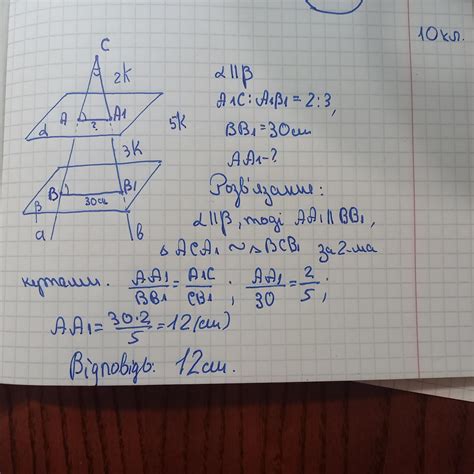 10 кл.
C
2K
A
A1
?
α
5K
3K
B
B1
30см
β
a
b
α || β
A1C : A1B1 = 2 : 3,
BB1 = 30см
AA1 - ?
Розв'язання:
α || β, тоді AA1 || BB1,
△ ACA1 ~ △ BCB1 за 2-ма
кутами. AA1/BB1 = A1C/CB1 ; AA1/30 = 2/5 ;
AA1 = 30·2/5 = 12 (см)
Відповідь: 12см.